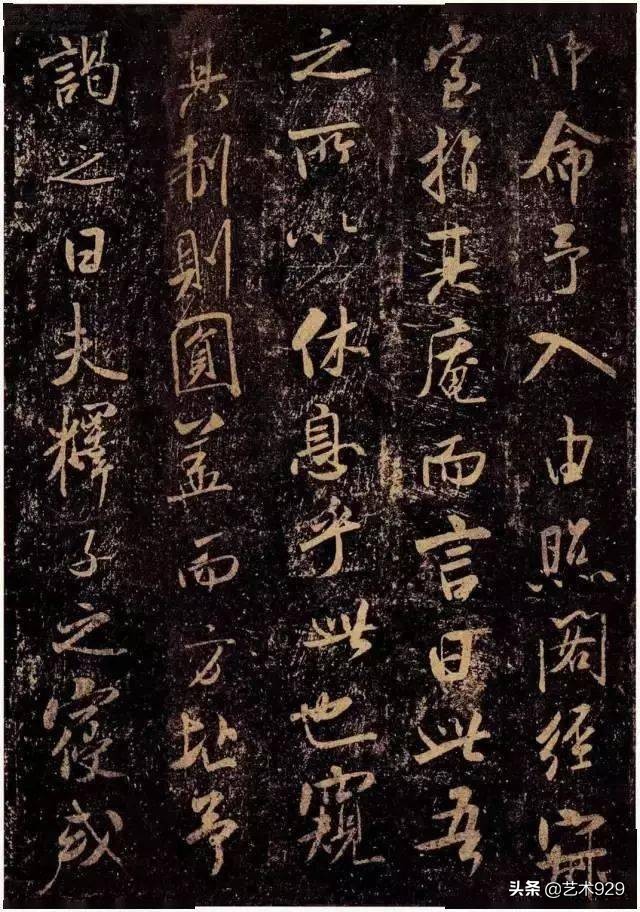 師命予入由照閣經寂
室指其庵而言曰此吾
之所以休息乎此也窺
其制則圓蓋而方址予
謁之曰夫釋子之寢或
头条 @艺术929